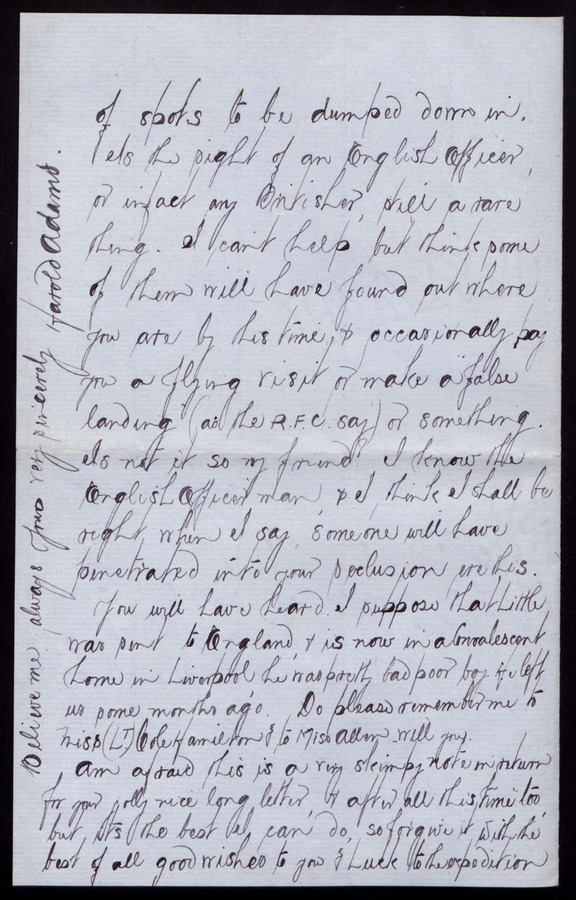 of spots to be dumped down in.
Is the sight of an English Officer,
or infact any Britisher, still a rare
thing. I can't help but think some
of them will have found out where
you are by this time, & occasionally pay
you a flying visit or make a "false
landing" (as the R.F.C. say) or something.
Is not it so my friend? I know the
English Officer man, & I think I shall be
right, when I say, someone will have
penetrated into your seclusion ere this.
You will have heard I suppose that Little
was sent to England, & is now in a Convalescent
home in Liverpool he was pretty bad poor boy He left
us some months ago. Do please remember me to
Miss (Lt) Cole Hamilton & to Miss Allen will you.
Am afraid this is a very skimpy note in return
for your jolly nice long letter, & after all this time too,
but, its the best I can do, so forgive it, with the
best of all good wishes to you & Luck to the expedition
Believe me always Yours very sincerely Harold Adams.